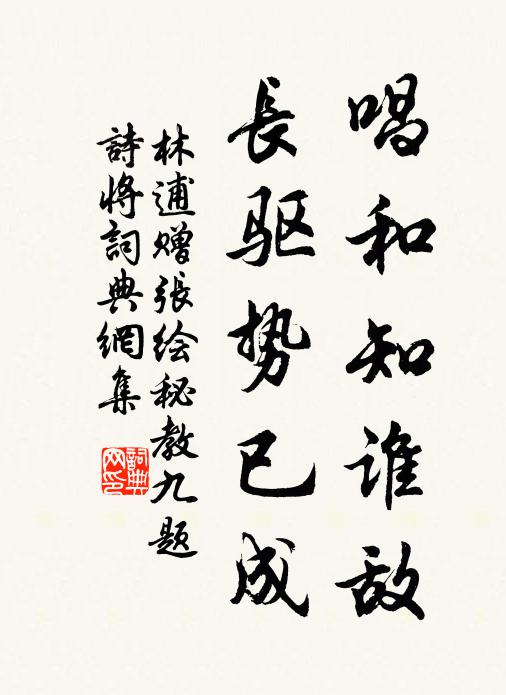 唱和知谁敌
長驱势已成
林逋赠張绘秘教九题
詩将詞典網集
詞典
网印